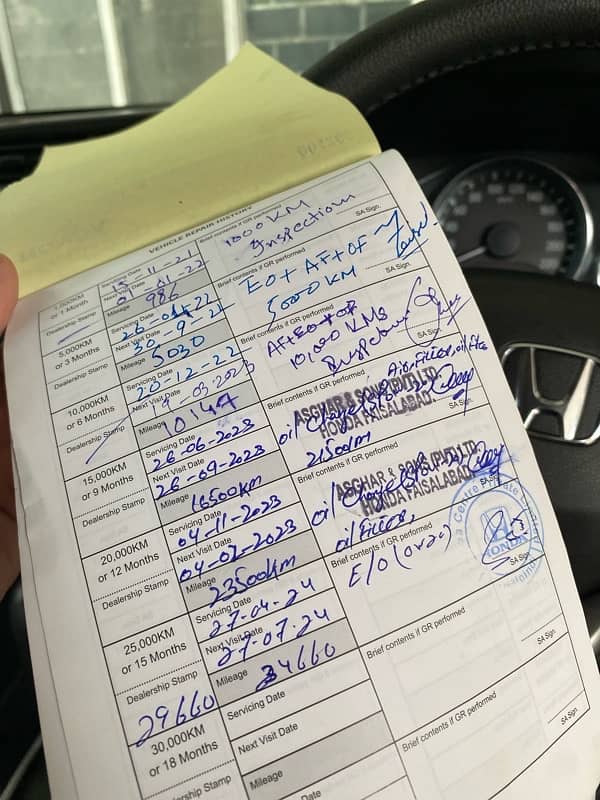 VEHICLE REPAIR HISTORY
1,000KM
or 1 Month
Dealership Stamp
Servicing Date
15-11-21
Next Visit Date
Mileage
986
Brief contents if GR performed
1000 KM
Inspection
SA Sign.
5,000KM
or 3 Months
Dealership Stamp
Servicing Date
Next Visit Date
Mileage
5030
Brief contents if GR performed
EO+AF+OF
5000 KM
SA Sign.
10,000KM
or 6 Months
Dealership Stamp
Servicing Date
20-12-22
Next Visit Date
Mileage
Brief contents if GR performed
10,000 KMs
SA Sign.
15,000KM
or 9 Months
Dealership Stamp
Servicing Date
26-06-2023
Next Visit Date
26-09-2023
Mileage
16500km
Brief contents if GR performed
ASGHAR & SONS (PVT) LTD.
HONDA FAISALABAD.
21500km
20,000KM
or 12 Months
Dealership Stamp
Servicing Date
04-11-2023
Next Visit Date
04-02-2023
Mileage
23500km
Brief contents if GR performed
ASGHAR & SONS (PVT) LTD.
HONDA FAISALABAD.
oil Filter,
SA Sign.
25,000KM
or 15 Months
Dealership Stamp
29660
Servicing Date
27-04-24
Next Visit Date
27-07-24
Mileage
34660
Brief contents if GR performed
E/O (0W20)
HONDA
SA Sign.
30,000KM
or 18 Months
Dealership Stamp
Servicing Date
Next Visit Date
Mileage
Brief contents if GR performed
SA Sign.
Brief contents if GR performed
SA Sign.